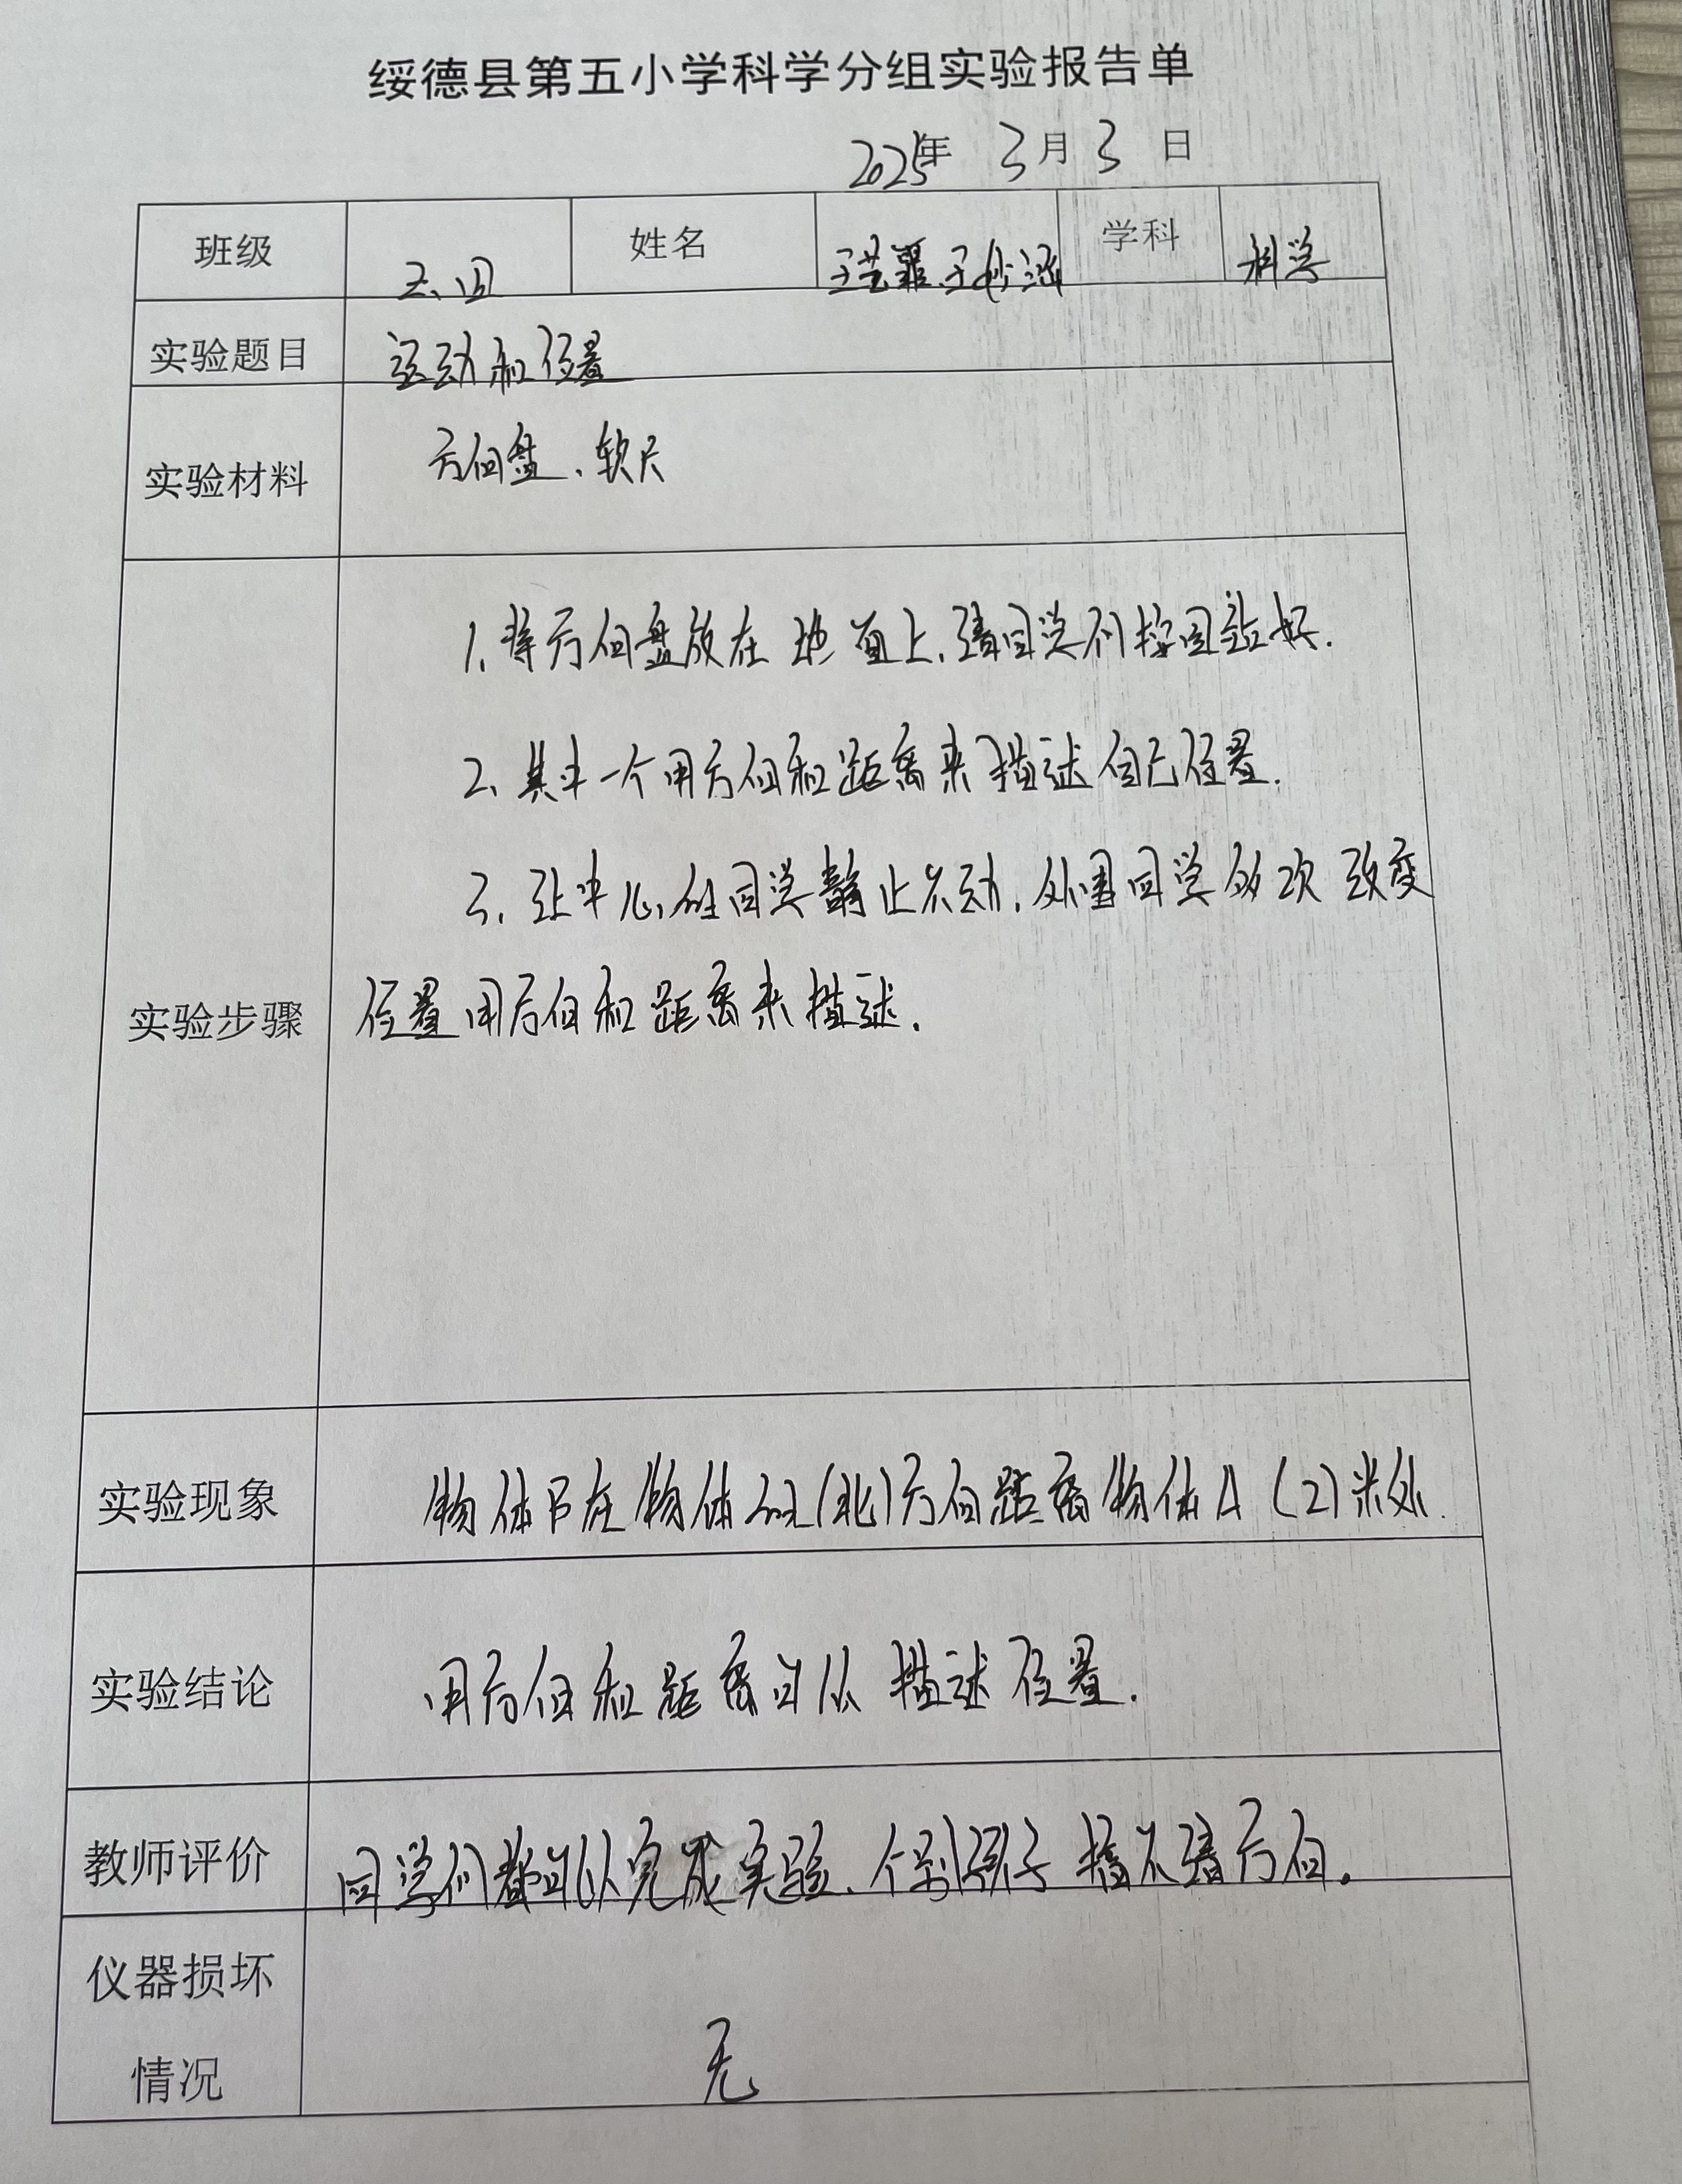 绥德县第五小学科学分组实验报告单
2025年 3月3 日
班级 三、四 姓名 学科 科学
实验题目 运动和位置
实验材料 方向盘、软尺
1、将方向盘放在地面上,请同学们按图站好.
2、其中一个用方向和距离来描述自己位置.
3、让中心的同学静止不动,外围同学多次改变
实验步骤 位置用方向和距离来描述.
实验现象 物体B在物体的(北)方向距离物体A(2)米处.
实验结论 用方向和距离可以描述位置.
教师评价 同学们都可以完成实验、个别孩子搞不清方向。
仪器损坏
情况 无